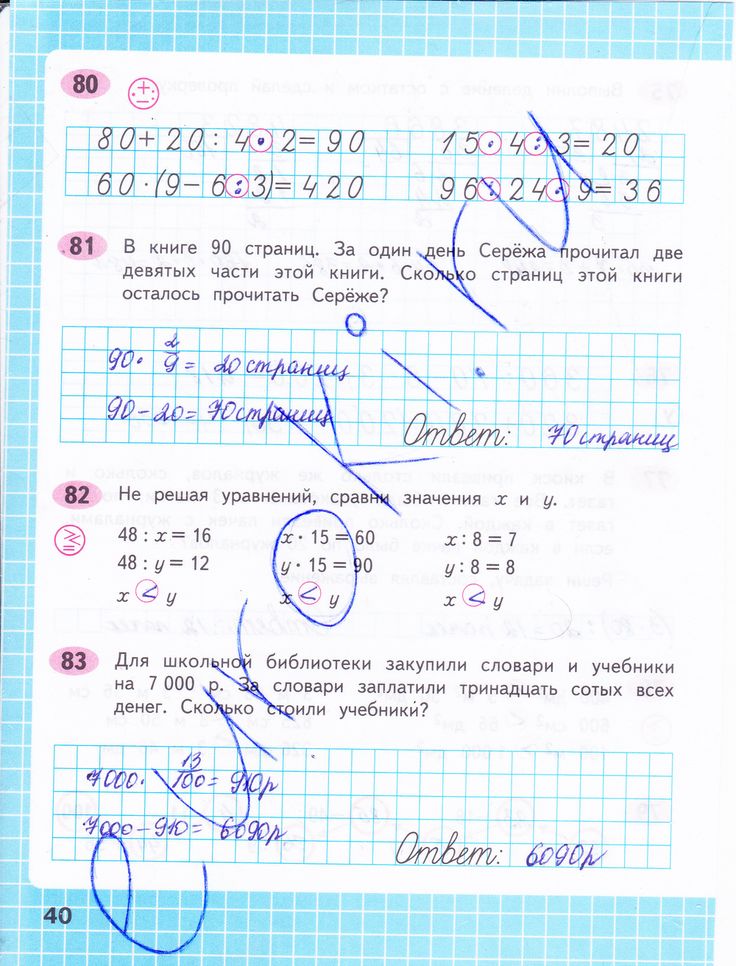 80
80 + 20 : 4 · 2 = 90 15 · 4 : 3 = 20
60 · (9 − 6 : 3) = 420 96 : 24 · 9 = 36
81 В книге 90 страниц. За один день Серёжа прочитал две
девятых части этой книги. Сколько страниц этой книги
осталось прочитать Серёже?
90 · 2/9 = 20 страниц
90 − 20 = 70 страниц
Ответ: 70 страниц
82 Не решая уравнений, сравни значения x и y.
48 : x = 16 x · 15 = 60 x : 8 = 7
48 : y = 12 y · 15 = 90 y : 8 = 8
x < y x < y x < y
83 Для школьной библиотеки закупили словари и учебники
на 7 000 р. За словари заплатили тринадцать сотых всех
денег. Сколько стоили учебники?
7000 · 13/100 = 910 р
7000 − 910 = 6090 р
Ответ: 6090 р
40